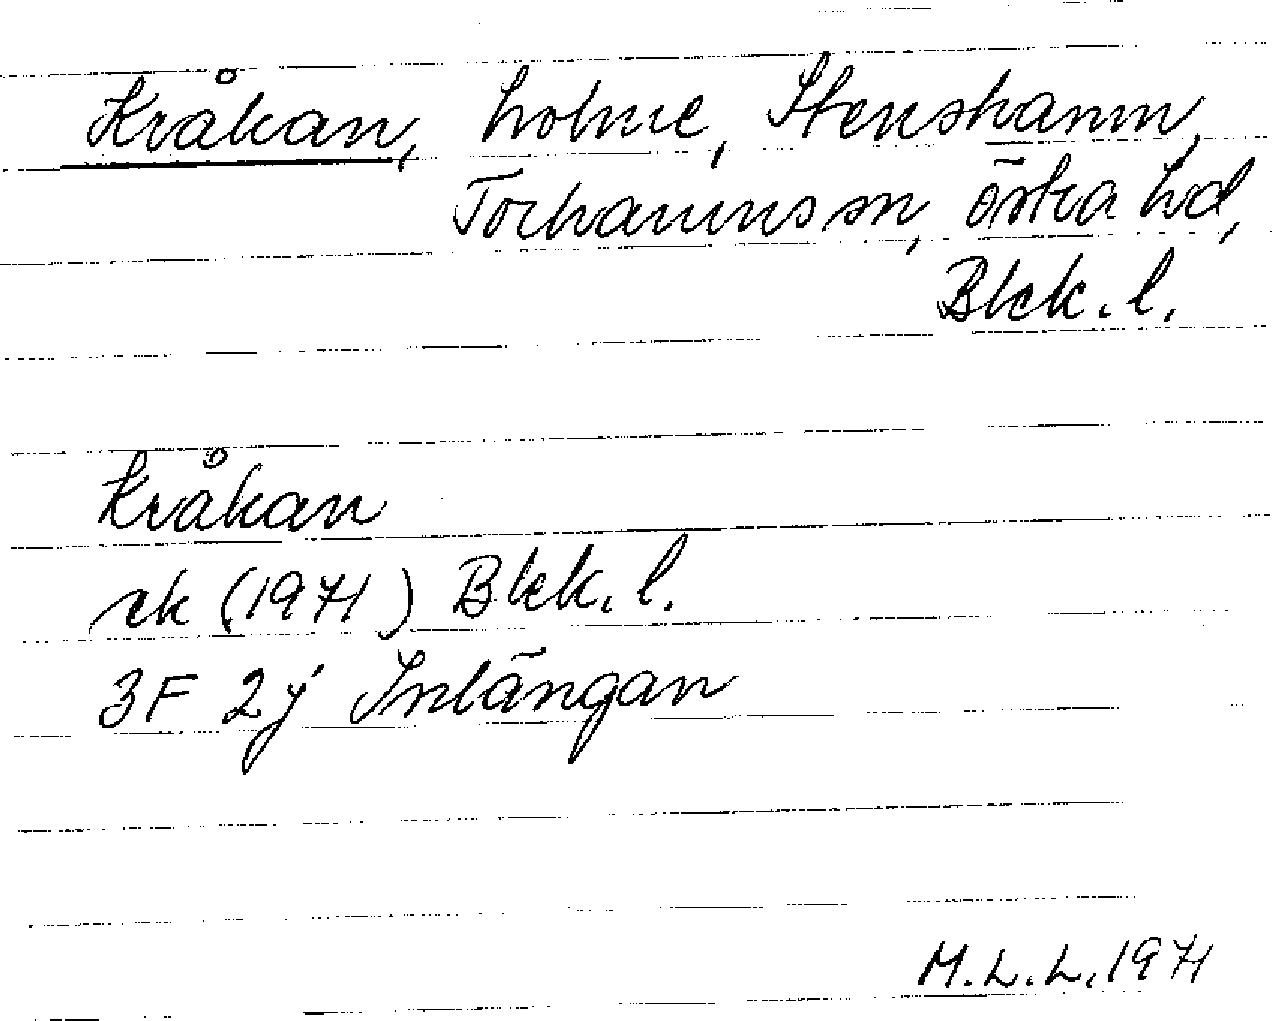 Kråkan, holme, Stenshamn,
Torhamns sn, östra hd,
Blek. l.
Kråkan
ek (1971) Blek. l.
3F 2j Inlängan
M.L.L. 1971